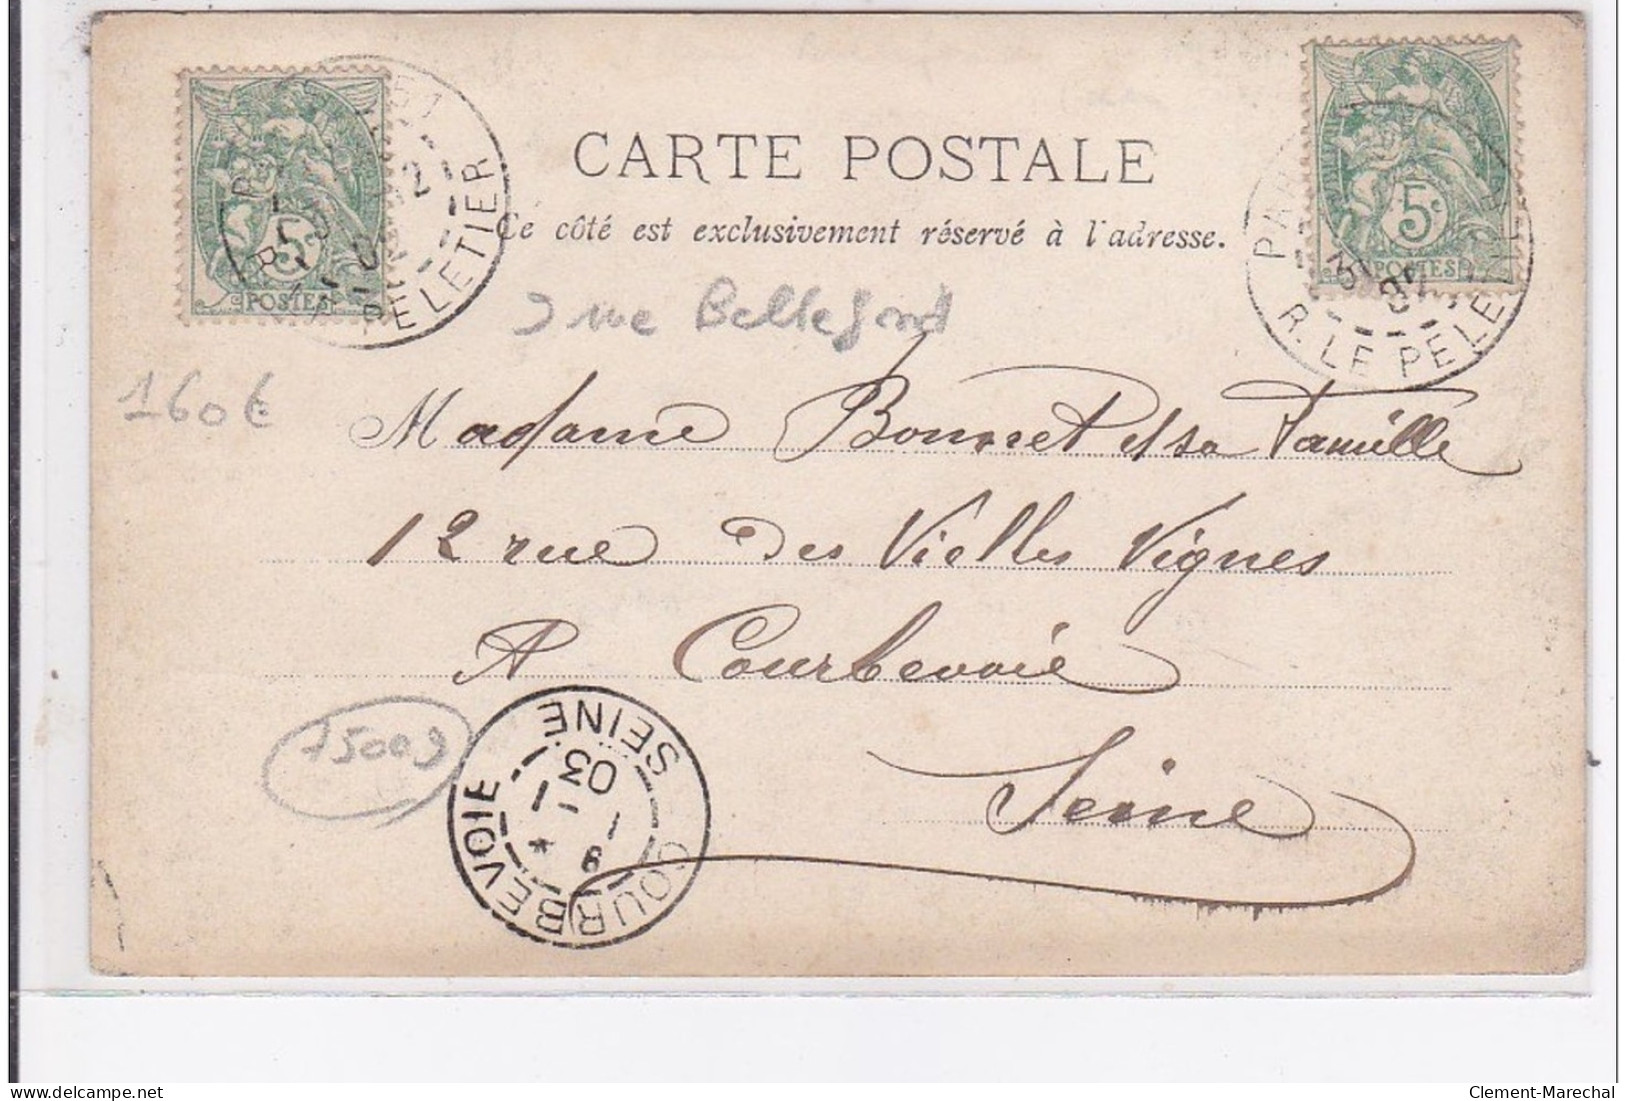 CARTE POSTALE
Ce côté est exclusivement réservé à l'adresse.
5c
POSTES
R. LE PELETIER
5c
POSTES
R. LE PELETIER
rue Bellefond
160€
Madame Bonnet et sa Famille
12 rue des Vielles Vignes
A Courbevoie
Seine
75009
COURBEVOIE
SEINE
03
Clement-Marechal